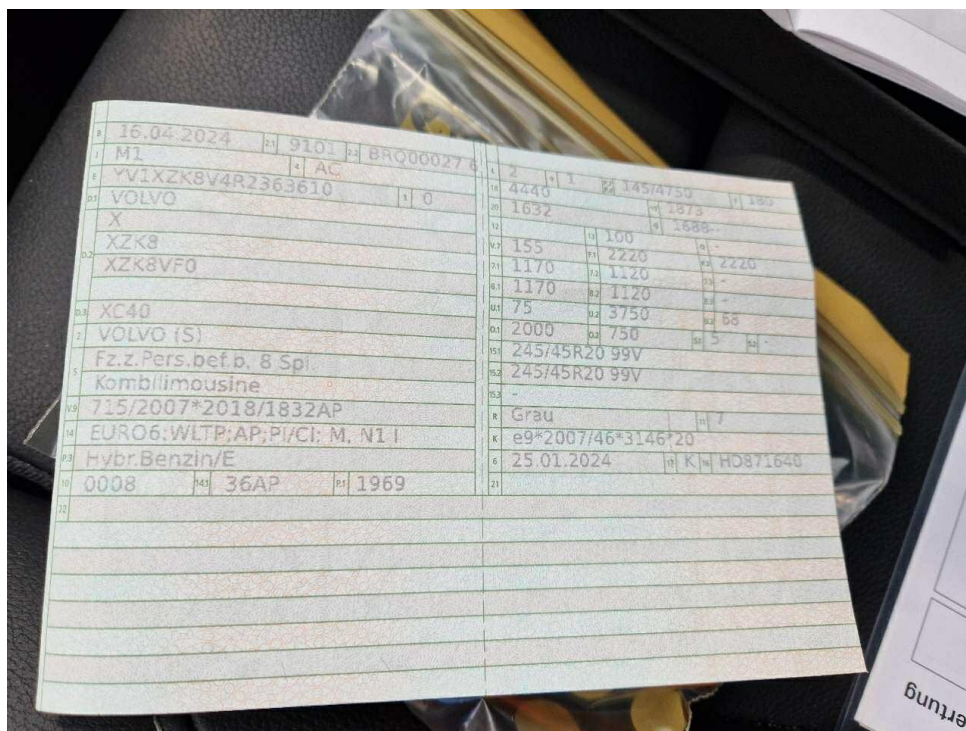 B 16.04.2024 2.1 9101 2.2 BRQ00027 6
J M1 4 AC
E YV1XZK8V4R2363610 3 0
D.1 VOLVO
X
D.2 XZK8
XZK8VF0
D.3 XC40
2 VOLVO (S)
5 Fz.z.Pers.bef.b. 8 Spl
Kombilimousine
V.9 715/2007*2018/1832AP
14 EURO6;WLTP;AP;PI/CI; M, N1 I
P.3 Hybr.Benzin/E
10 0008 14.1 36AP P.1 1969
22
L 2 9 1 145/4750 T 180
18 4440 19 1873
20 1632 G 1688-
12 - 13 100 Q -
V.7 155 F.1 2220 F.2 2220
7.1 1170 7.2 1120 7.3 -
8.1 1170 8.2 1120 8.3 -
U.1 75 U.2 3750 U.3 68
O.1 2000 O.2 750 S.1 5 S.2 -
15.1 245/45R20 99V
15.2 245/45R20 99V
15.3 -
R Grau 11 7
K e9*2007/46*3146*20
6 25.01.2024 17 K 16 HD871640
21
ertung